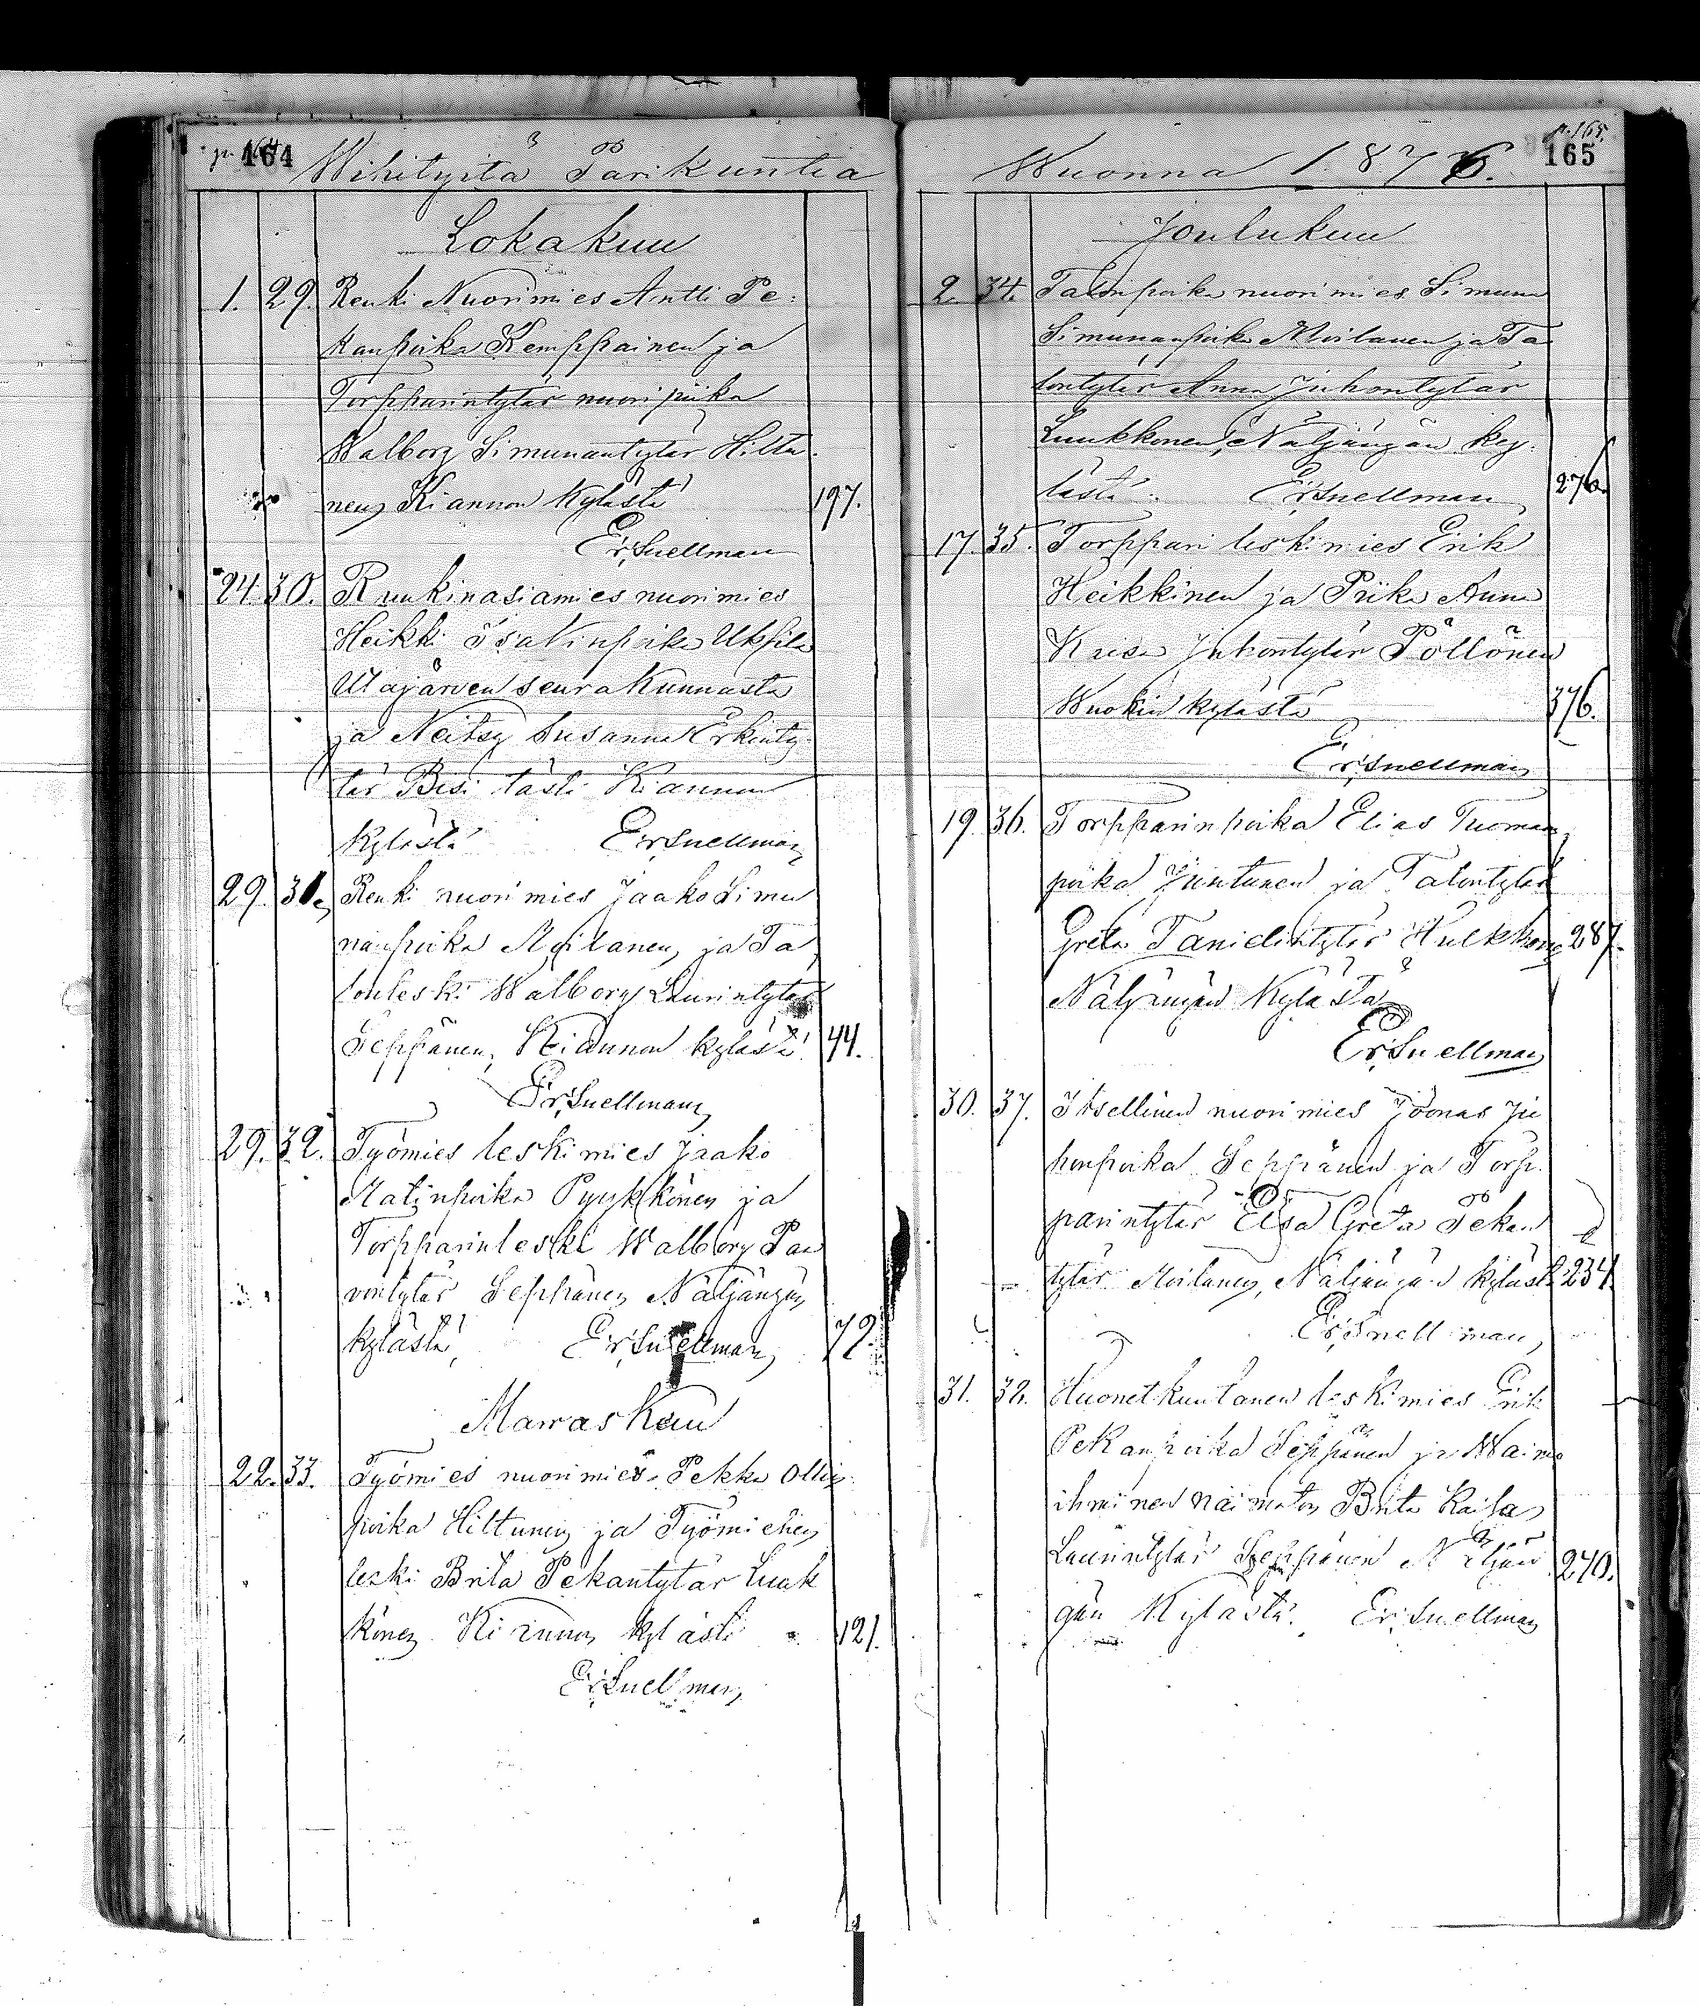 p. 164
164
Wihityitä Parikuntia
Lokakuu
1. 29. Renki Nuorimies Antti Pe-
kanpoika Kemppainen ja
Torpparintytär nuori piika
Walborg Simunantytär Hiltu-
nen, Kiannon kylästä 197.
Er. Snellman
24. 30. Ruukinasiamies nuorimies
Heikki Isakinpoika
Utajärven seurakunnasta
ja Neitsy Susanna Erkinty-
tär tästä Kiannon
kylästä Er. Snellman
29. 31. Renki nuorimies Jaako Simu
nanpoika Moilanen, ja Ta
lonleski Walborg Laurintytär
Seppänen, Kiannon kylästä. 44.
Er. Snellman
29. 32. Työmies leskimies Jaako
Matinpoika Pyykkönen ja
Torpparinleski Walborg Paa
vontytär Seppänen Näljängän
kylästä, Er. Snellman 79.
Marraskuu
22. 33. Työmies nuorimies Pekka Ollin
poika Hiltunen ja Työmiehen
leski Brita Pekantytär Luuk
könen Kiannon kylästä 121.
Er. Snellman
p. 165.
165
Wuonna 1876.
Joulukuu
2. 34. Talonpoika nuorimies Simuna
Simunanpoika Moilanen ja Ta
lontytär Anna Juhontytär
Luukkonen, Näljängän ky-
lästä. Er. Snellman 276.
17. 35. Torppari leskimies Erik
Heikkinen ja Piika Anna
Kaisa Juhontytär Pöllönen
Wuokin kylästä 376.
Er. Snellman
19. 36. Torpparinpoika Elias Tuoman
poika Juntunen ja Talontytär
Greta Tanielintytär Hulkkonen 287.
Näljängän Kylästä
Er. Snellman
30. 37. Itsellinen nuorimies Joonas Ju
honpoika Seppänen ja Torp-
parintytär Elsa Greta Pekan
tytär Moilanen, Näljängän kylästä 234.
Er. Snellman
31. 38. Huonetkuntanen leskimies Erik
Pekanpoika Seppänen ja Waimo
ihminen naimaton Brita Kaisa
Laurintytär Seppänen Näljän 270.
gän Kylästä. Er. Snellman